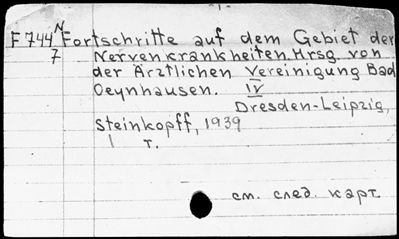 F 744 N Fortschritte auf dem Gebiet der
7 Nervenkrankheiten. Hrsg. von
der Ärztlichen Vereinigung Bad
Oeynhausen. IV
Dresden-Leipzig,
Steinkopff, 1939
1 т.
см. след. карт.